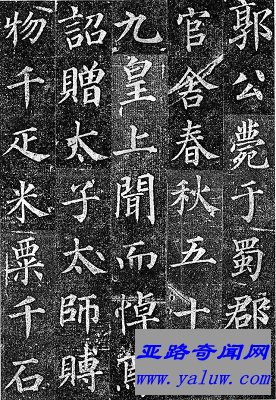 郭公薨于蜀郡
官舍春秋五十
九皇上聞而悼焉
詔贈太子太師賻
物千疋米粟千石
亚路奇闻网
www.yaluw.com